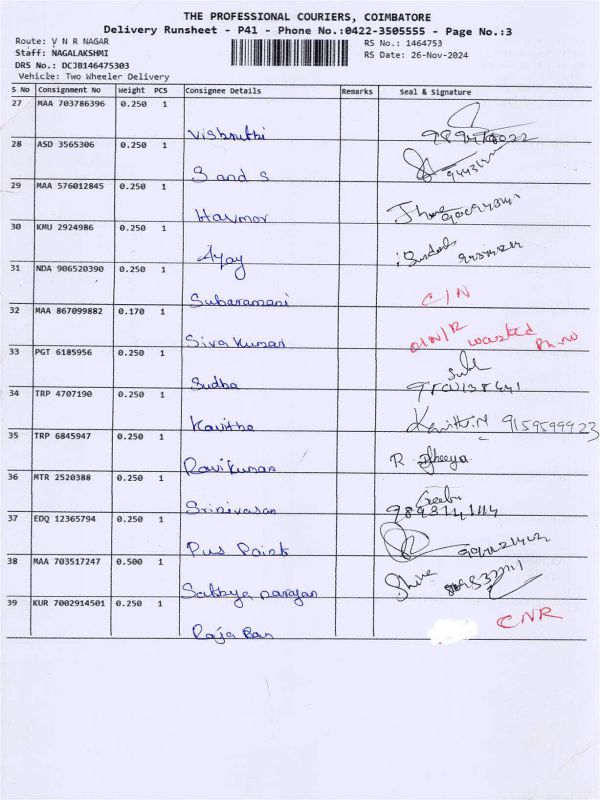 THE PROFESSIONAL COURIERS, COIMBATORE
Delivery Runsheet - P41 - Phone No.:0422-3505555 - Page No.:3
Route: V N R NAGAR
RS No.: 1464753
Staff: NAGALAKSHMI
RS Date: 26-Nov-2024
DRS No.: DCJB146475303
Vehicle: Two Wheeler Delivery
S No Consignment No Weight PCS Consignee Details Remarks Seal & Signature
27 MAA 703786396 0.250 1
28 ASD 3565306 0.250 1
S and S
29 MAA 576012845 0.250 1
Harmor
30 KMU 2924986 0.250 1
Ajay
31 NDA 906520390 0.250 1
Subaramani C/N
32 MAA 867099882 0.170 1
Siva Kumar wasted Ph.no
33 PGT 6185956 0.250 1
Sudha
34 TRP 4707190 0.250 1
Kavitha 9159599923
35 TRP 6845947 0.250 1
Ravikumar R
36 MTR 2520388 0.250 1
Srinivasan
37 EDQ 12365794 0.250 1
Pus Point
38 MAA 703517247 0.500 1
Sathya narayan
39 KUR 7002914501 0.250 1
Raja Ran CNR